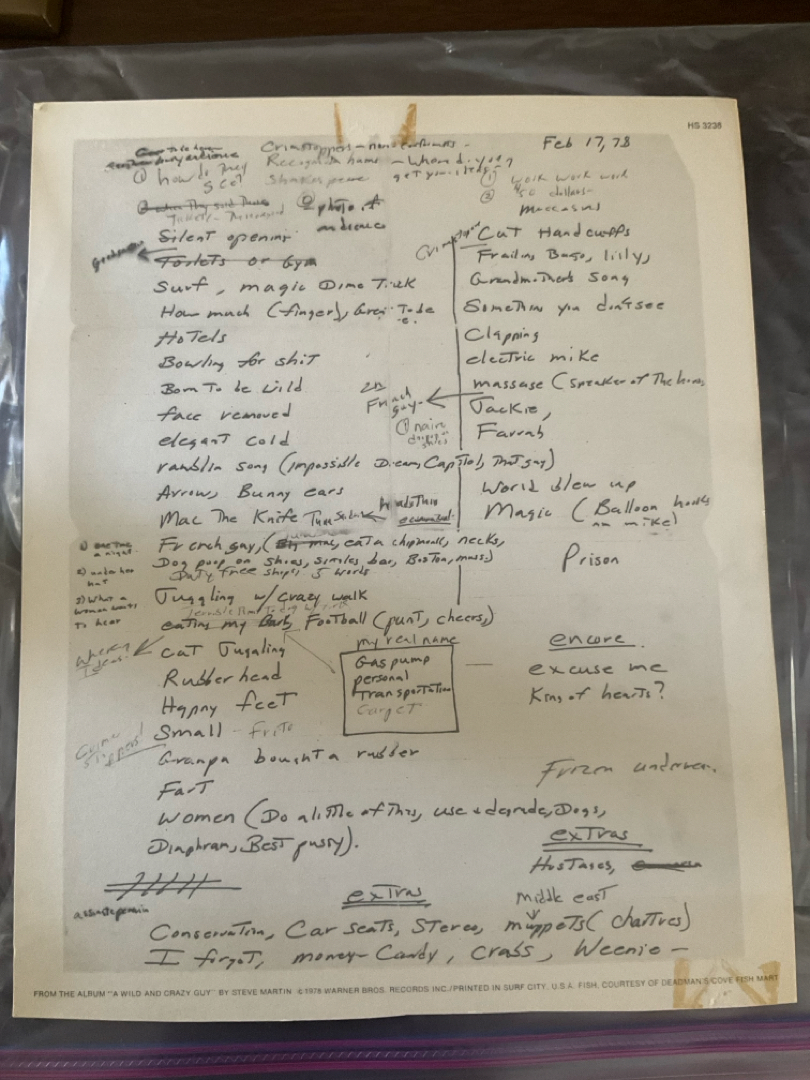 HS 3236
Feb 17, 78
Crimstoppers - nonconformists -
① how do they get
Recognan hams - Whom do you
Shakespeare get your ideas
① work work work
② $50 dollars -
moccasins
② photo of audience
Silent opening
Toilets or Gym
Surf, magic Dime Trick
How much (finger), Groi Tode
Hotels
Bowling for shit
Born To be wild
face removed
elegant cold
ramblin song (impossible Dream, Capitol, That guy)
Arrow, Bunny ears
Mac The Knife
French guy, mac, eat a chipmunk, necks,
Dog poop on shoes, singles bar, Boston, mass.)
Duty Free shops, 5 words
① one time a night
2) under her hat
3) What a woman wants To hear
Juggling w/ crazy walk
eating my Football (punt, cheers,)
Cat Juggling
Rubber head
Happy feet
Small - Frito
Granpa bought a rubber
Fart
Women (Do a little of This, use + degrade, Dogs,
Diaphram, Best pussy).
Cat Handcuffs
Frailin, Banjo, Lilly,
Grandmothers Song
Something you don't see
Clapping
electric mike
massage (speaker of The house
Jackie,
Farrah
French guy
World blew up
Magic (Balloon hooks on mike)
Prison
my real name
Gas pump
personal
Transportation
Carpet
encore
excuse me
King of hearts?
Frozen underwear.
extras
Hostages,
Middle east
extras
Conservation, Car seats, Stereo, muppets (chattres)
I forgot, money - Candy, crabs, Weenie -
FROM THE ALBUM "A WILD AND CRAZY GUY" BY STEVE MARTIN ©1978 WARNER BROS. RECORDS INC./PRINTED IN SURF CITY, U.S.A. FISH, COURTESY OF DEADMAN'S COVE FISH MART